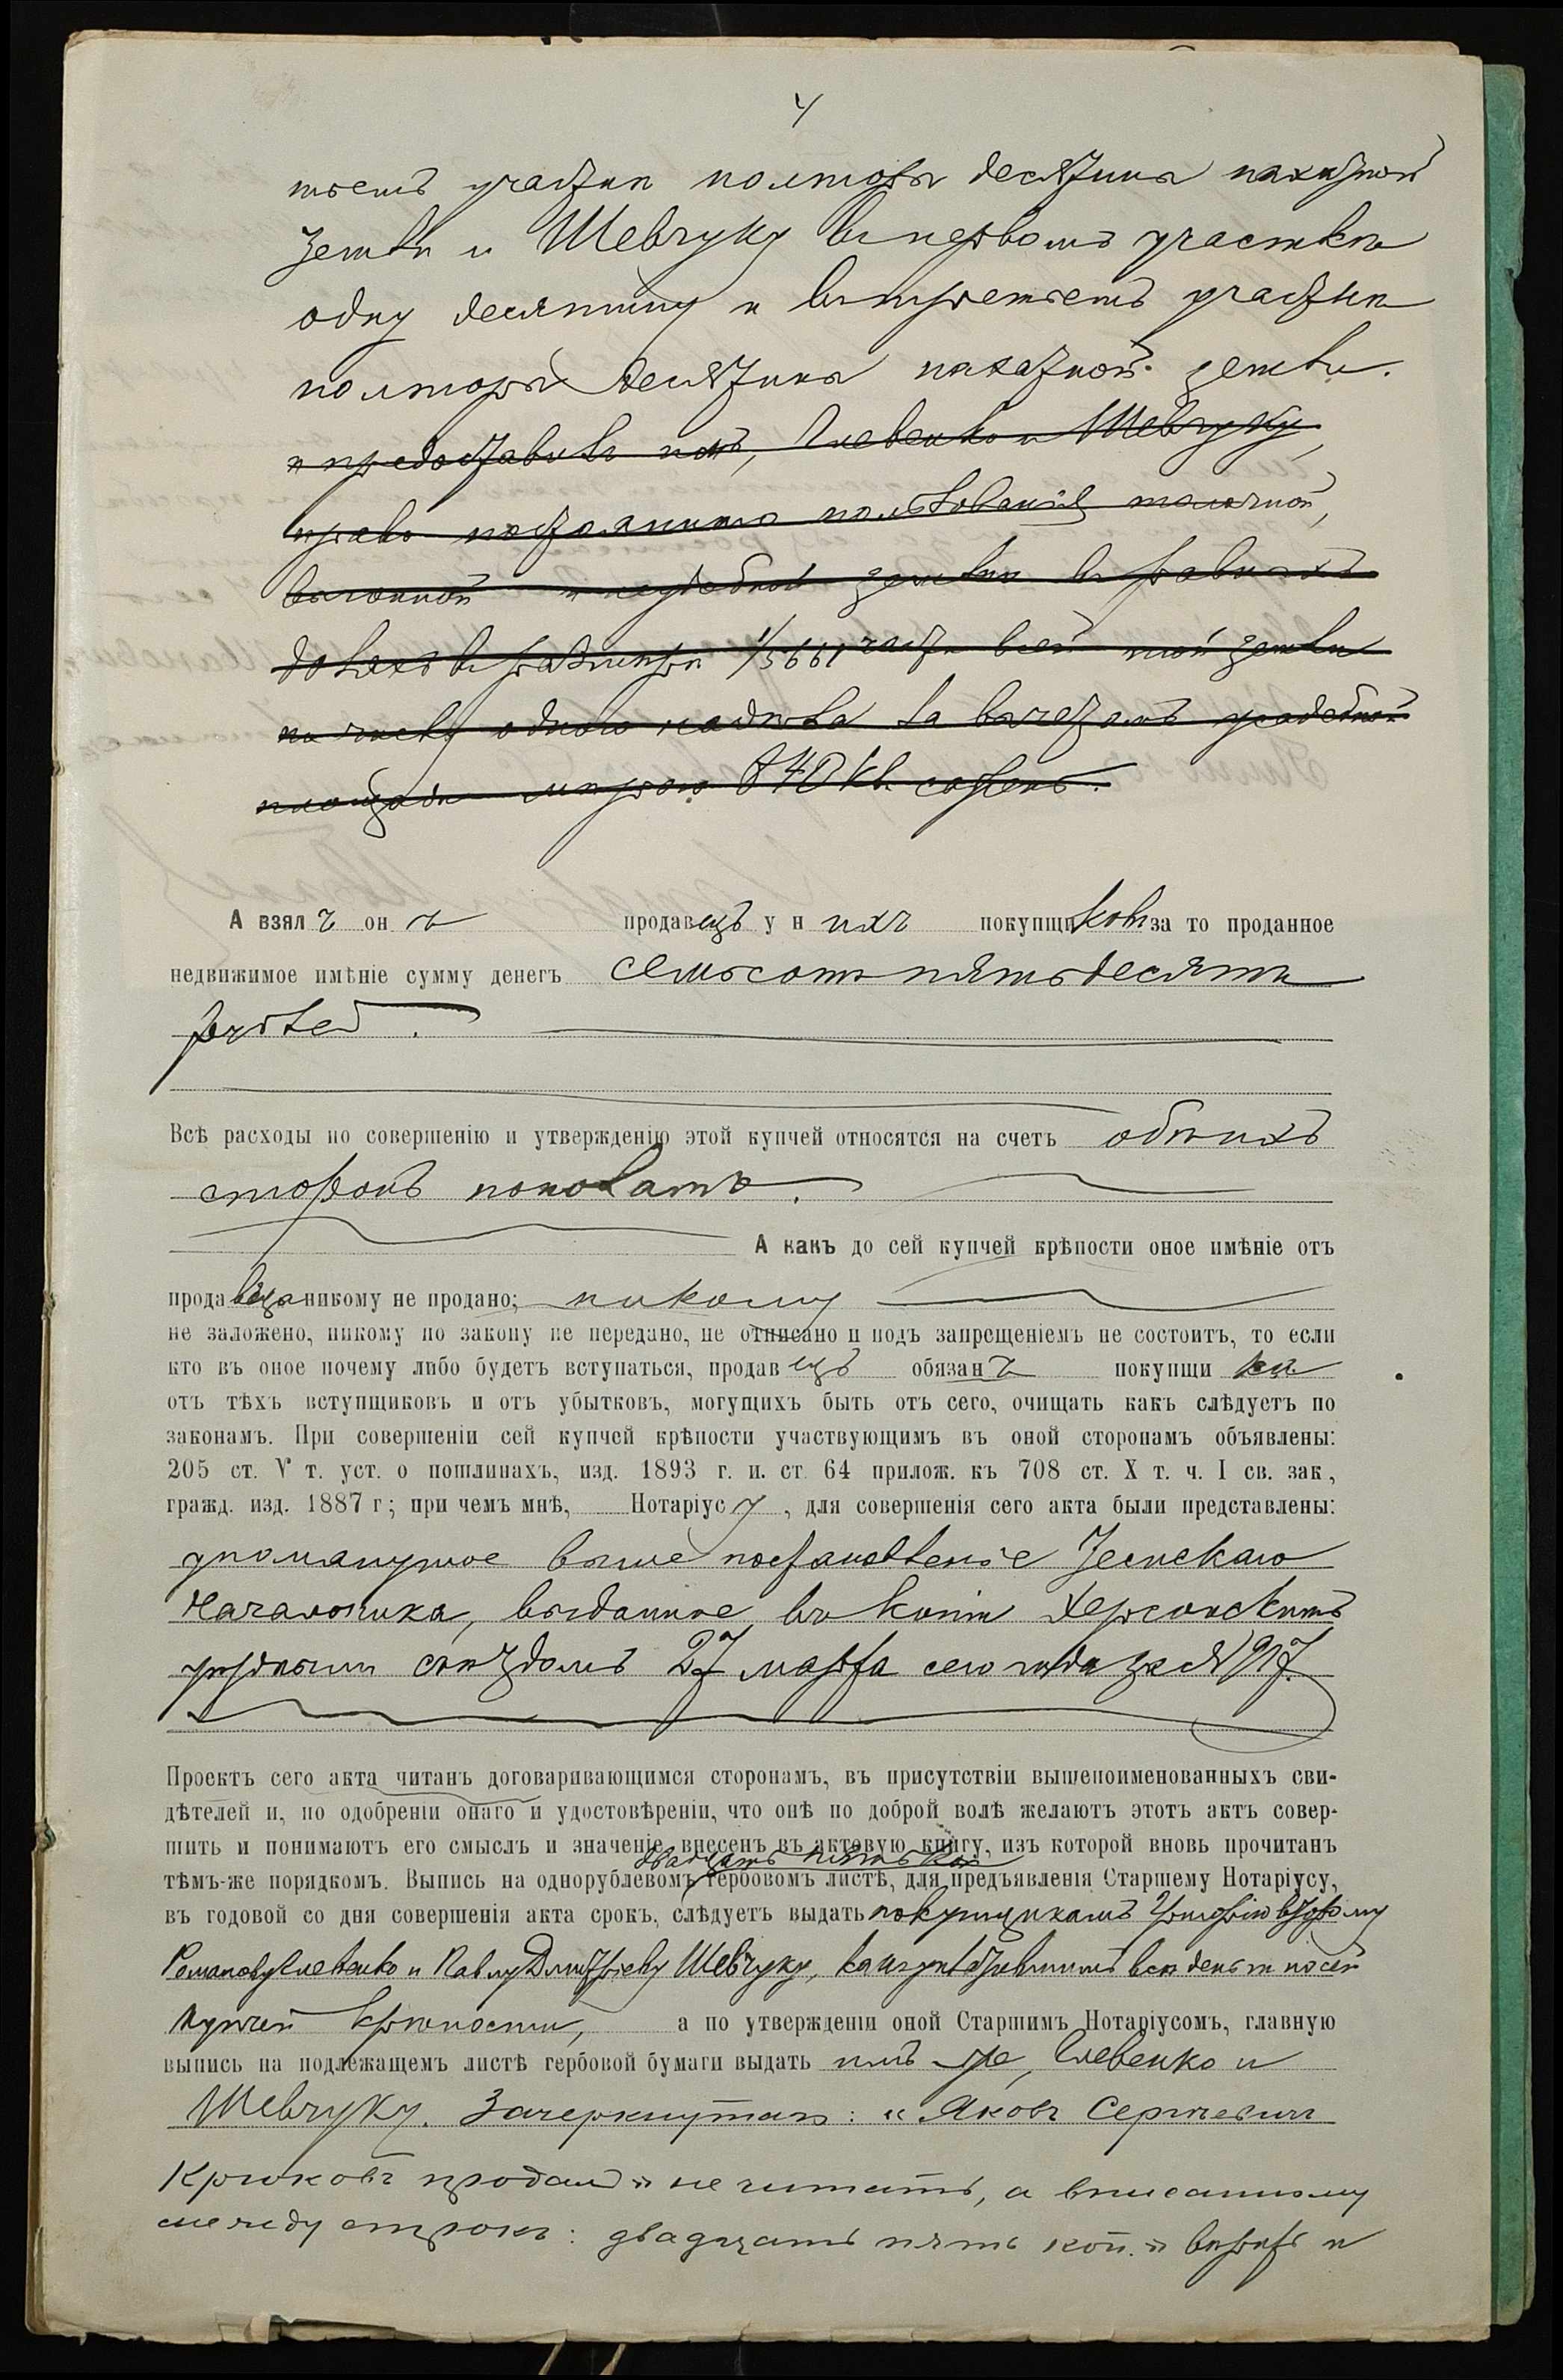 4
тьемъ участкѣ полторы десятины пахатной
земли и Шевчуку въ первомъ участкѣ
одну десятину и въ третьемъ участкѣ
полторы десятины пахатной земли.
и предоставилъ имъ, Слевенко и Шевчуку,
право постояннаго пользованія толочной,
выгонной и неудобной земли въ равныхъ
доляхъ въ размѣрѣ 1/5661 части всей той земли
по числу одного надѣла за вычетомъ усадебной
площади мѣрою 840 кв. сажень.
А взялъ онъ продавецъ у нихъ покупщиковъ за то проданное
недвижимое имѣніе сумму денегъ семьсотъ пятьдесятъ
рублей.
Всѣ расходы по совершенію и утвержденію этой купчей относятся на счетъ обѣихъ
сторонъ пополамъ.
А какъ до сей купчей крѣпости оное имѣніе отъ
продавца никому не продано; никому
не заложено, никому по закону не передано, не отписано и подъ запрещеніемъ не состоитъ, то если
кто въ оное почему либо будетъ вступаться, продавецъ обязанъ покупщи
отъ тѣхъ вступщиковъ и отъ убытковъ, могущихъ быть отъ сего, очищать какъ слѣдуетъ по
законамъ. При совершеніи сей купчей крѣпости участвующимъ въ оной сторонамъ объявлены:
205 ст. V т. уст. о пошлинахъ, изд. 1893 г. и. ст 64 прилож. къ 708 ст. X т. ч. I св. зак.,
гражд. изд. 1887 г; при чемъ мнѣ, Нотаріусу, для совершенія сего акта были представлены:
упомянутое выше постановленіе Земскаго
Начальника, выданное въ копіи Херсонскимъ
уѣзднымъ съѣздомъ 27 марта сего года за № 917.
Проектъ сего акта читанъ договаривающимся сторонамъ, въ присутствіи вышепоименованныхъ сви-
дѣтелей и, по одобреніи онаго и удостовѣреніи, что онѣ по доброй волѣ желаютъ этотъ актъ совер-
шить и понимаютъ его смыслъ и значеніе, внесенъ въ актовую книгу, изъ которой вновь прочитанъ
двадцать пять коп
тѣмъ-же порядкомъ. Выпись на однорублевомъ гербовомъ листѣ, для предъявленія Старшему Нотаріусу,
въ годовой со дня совершенія акта срокъ, слѣдуетъ выдать покупщикамъ Григорію второму
Романову Слевенко и Павлу Дмитріеву Шевчуку, всѣ деньги по сей
купчей крѣпости, а по утвержденіи оной Старшимъ Нотаріусомъ, главную
выпись на подлежащемъ листѣ гербовой бумаги выдать имъ же, Слевенко и
Шевчуку. Зачеркнутаго: «Яковъ Сергѣевичъ
Крюковъ продалъ» не читать, а вписанному
между строкъ: двадцать пять коп.» вѣрить и